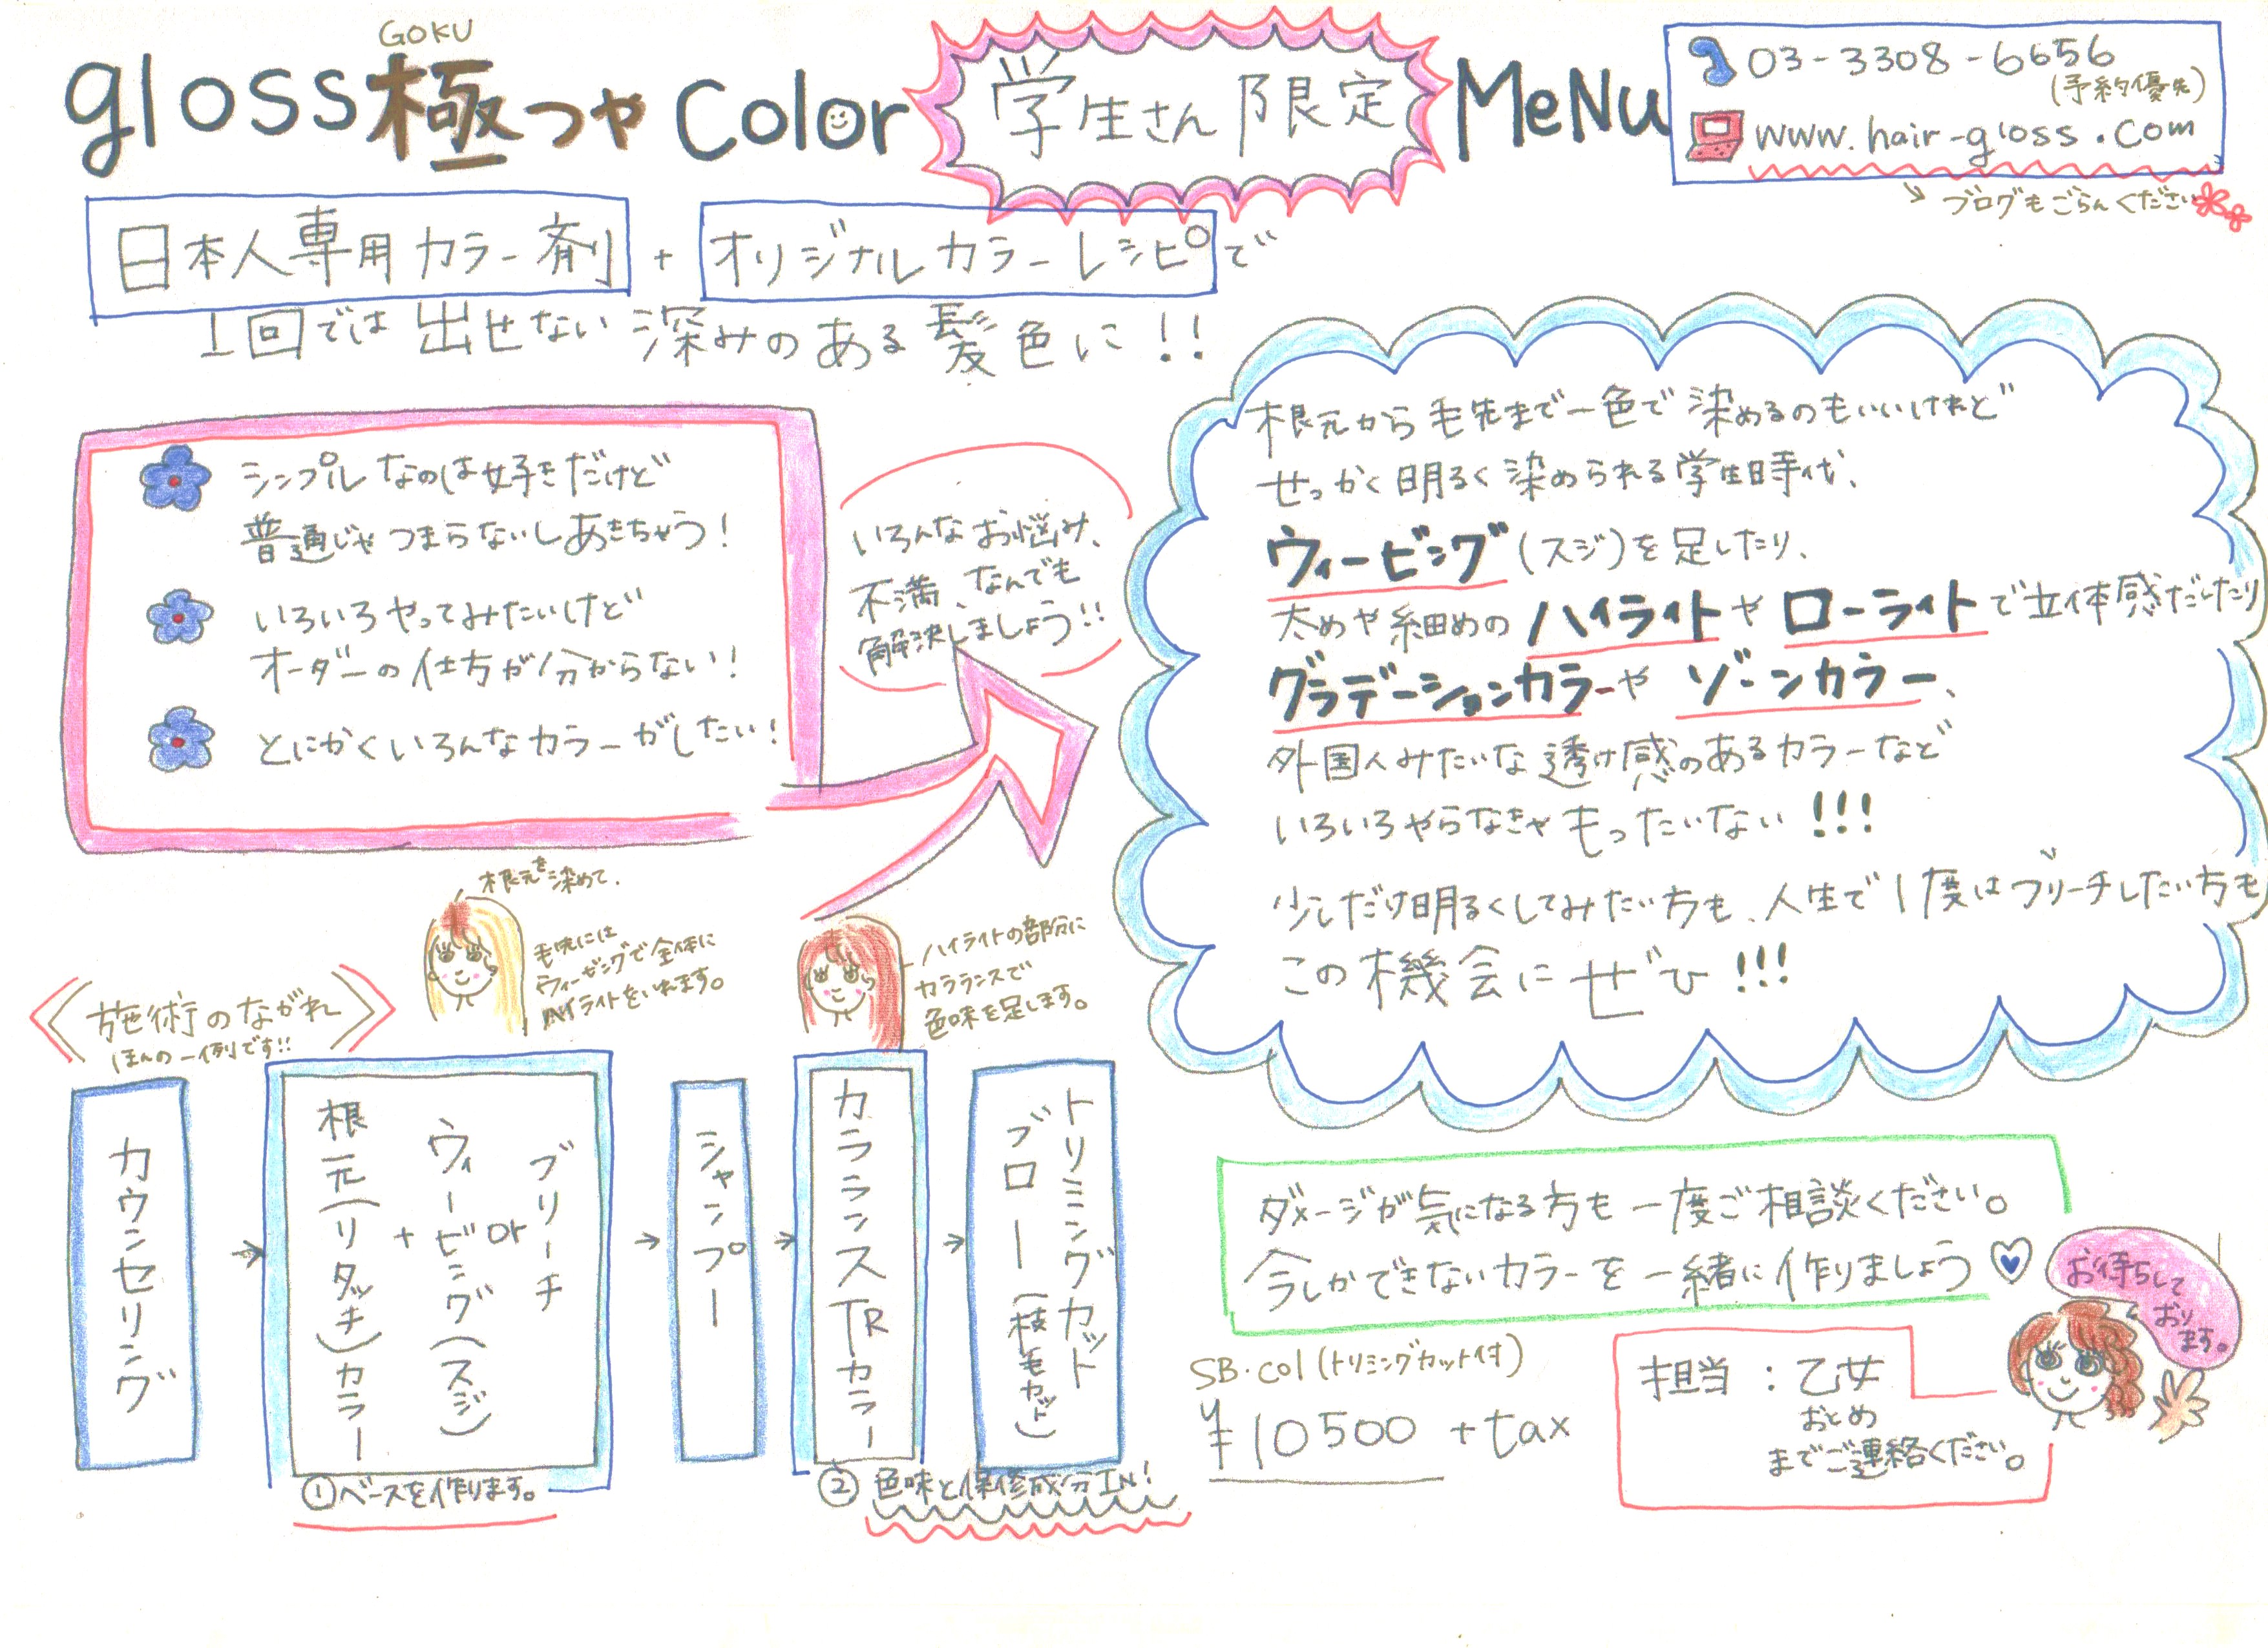 GOKU
gloss極つや Color 学生さん限定 MeNu
03-3308-6656
(予約優先)
www.hair-gloss.com
ブログもごらんください
日本人専用カラー剤 + オリジナルカラーレシピで
1回では出せない深みのある髪色に!!
シンプルなのは好きだけど
普通じゃつまらないしあきちゃう!
いろいろやってみたいけど
オーダーの仕方が分からない!
とにかくいろんなカラーがしたい!
いろんなお悩み、
不満、なんでも
解決しましょう!!
根元から毛先まで一色で染めるのもいいけれど
せっかく明るく染められる学生時代、
ウィービング(スジ)を足したり、
太めや細めのハイライトやローライトで立体感だしたり
グラデーションカラーやゾーンカラー、
外国人みたいな透け感のあるカラーなど
いろいろやらなきゃもったいない!!!
少しだけ明るくしてみたい方も、人生で1度はブリーチしたい方も
この機会にぜひ!!!
根元を染めて、
毛先には
ウィービングで全体に
ハイライトをいれます。
ハイライトの部分に
カラランスで
色味を足します。
施術のながれ
ほんの一例です!!
カウンセリング
→
根元(リタッチ)カラー
+
ウィービング(スジ)
or
ブリーチ
→
シャンプー
→
カラランスTRカラー
→
トリミングカット
ブロー(枝毛カット)
①ベースを作ります。
② 色味と保修成分IN!
ダメージが気になる方も一度ご相談ください。
今しかできないカラーを一緒に作りましょう♡
SB・col(トリミングカット付)
¥10500 +tax
担当:乙女
おとめ
までご連絡ください。
お待ちして
おり
ます。